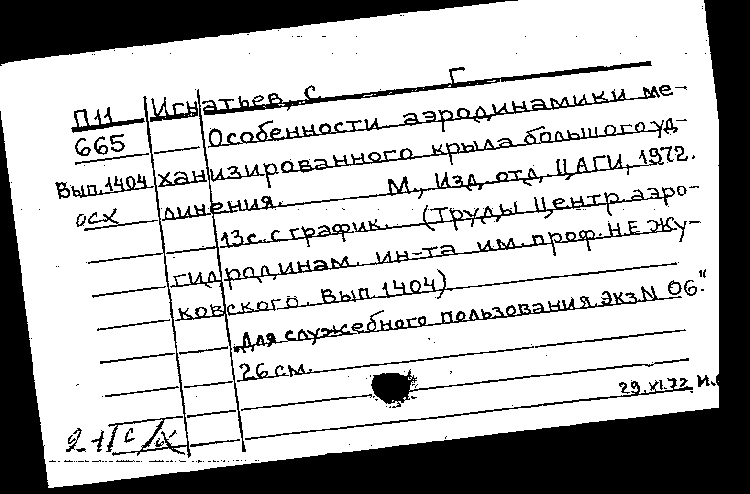 П11 Игнатьев, С Г
665 Особенности аэродинамики ме-
Вып.1404 ханизированного крыла большого уд-
осх линения. М., Изд. отд. ЦАГИ, 1972.
13с. с график. (Труды Центр. аэро-
гидродинам. ин-та им. проф. Н.Е Жу-
ковского. Вып. 1404)
"Для служебного пользования. Экз.N 06."
26 см.
29.XI.72